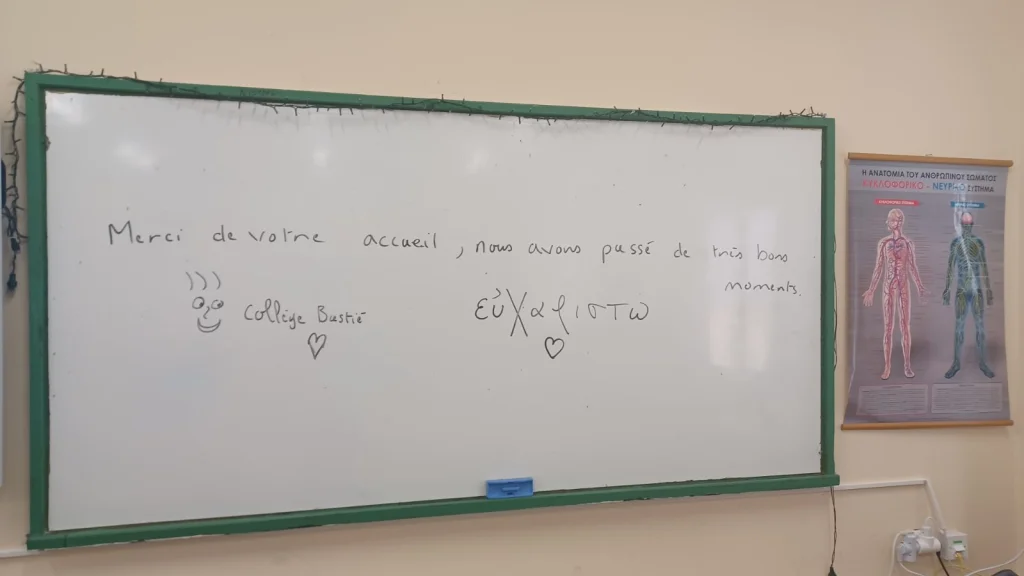 Merci de votre accueil, nous avons passé de très bons
moments.
Collège Bustié
εὐχαριστω
Η ΑΝΑΤΟΜΙΑ ΤΟΥ ΑΝΘΡΩΠΙΝΟΥ ΣΩΜΑΤΟΣ
ΚΥΚΛΟΦΟΡΙΚΟ - ΝΕΥΡΙΚΟ ΣΥΣΤΗΜΑ